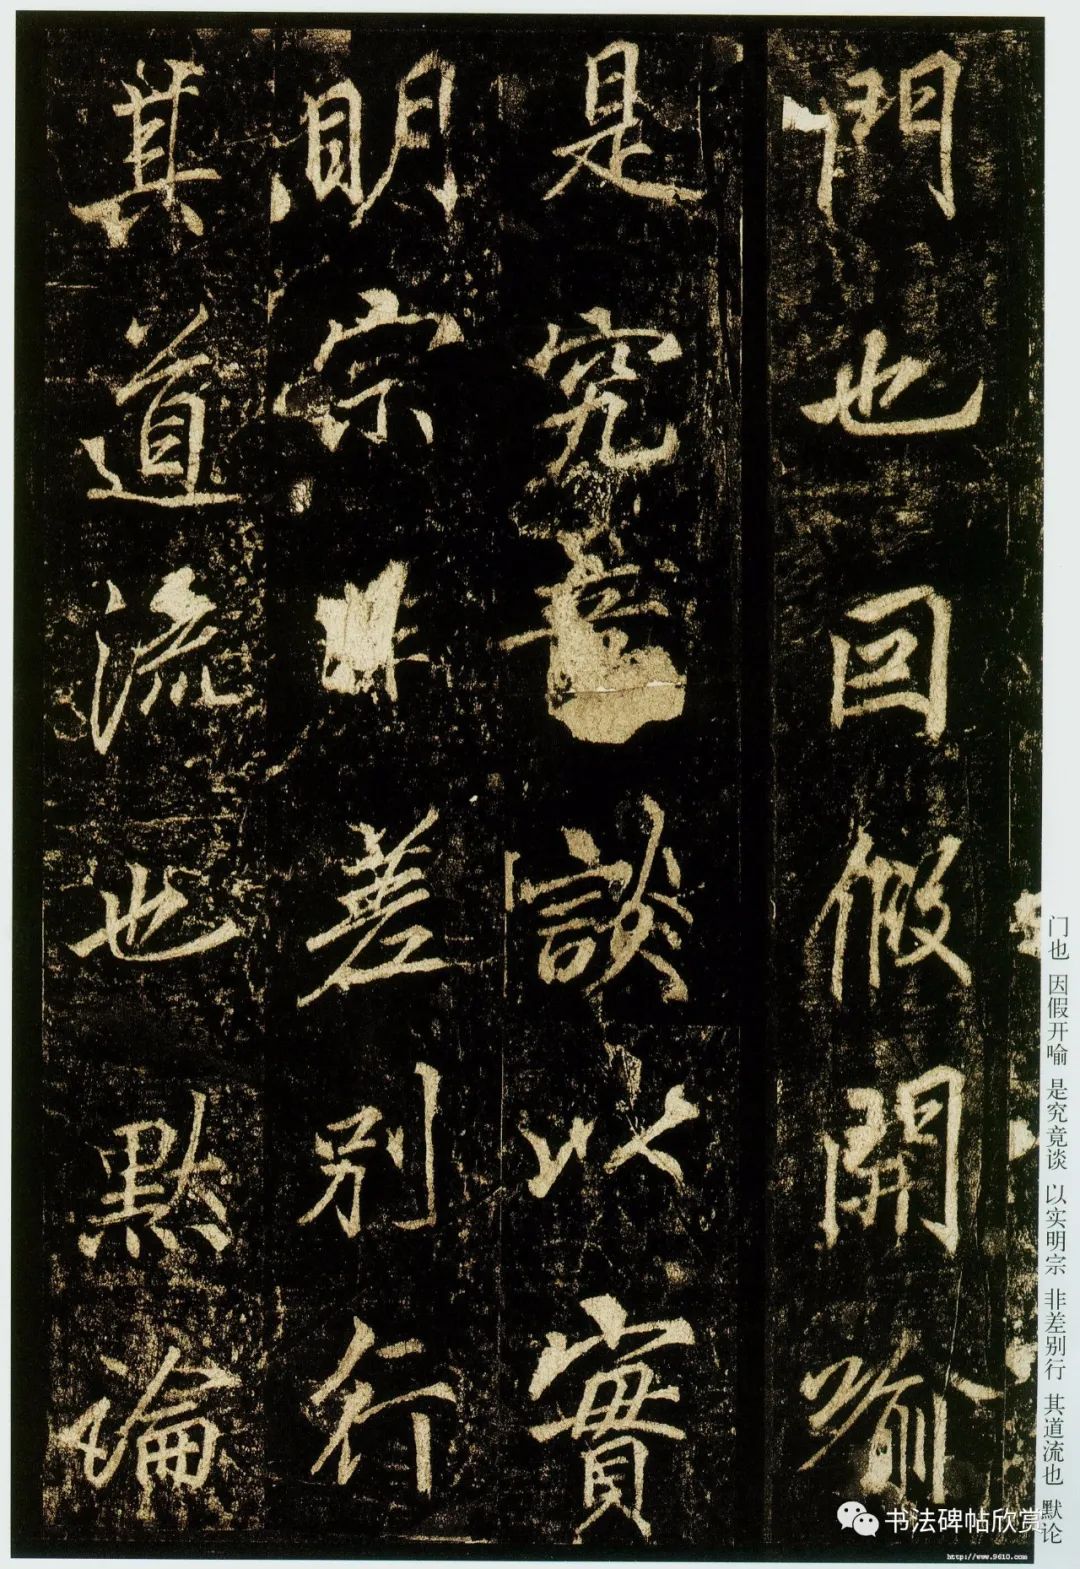 門也因假開喻
是究竟談以實
明宗非差別行
其道流也默論
门也 因假开喻 是究竟谈 以实明宗 非差别行 其道流也 默论
书法碑帖欣赏
http://www.9610.com